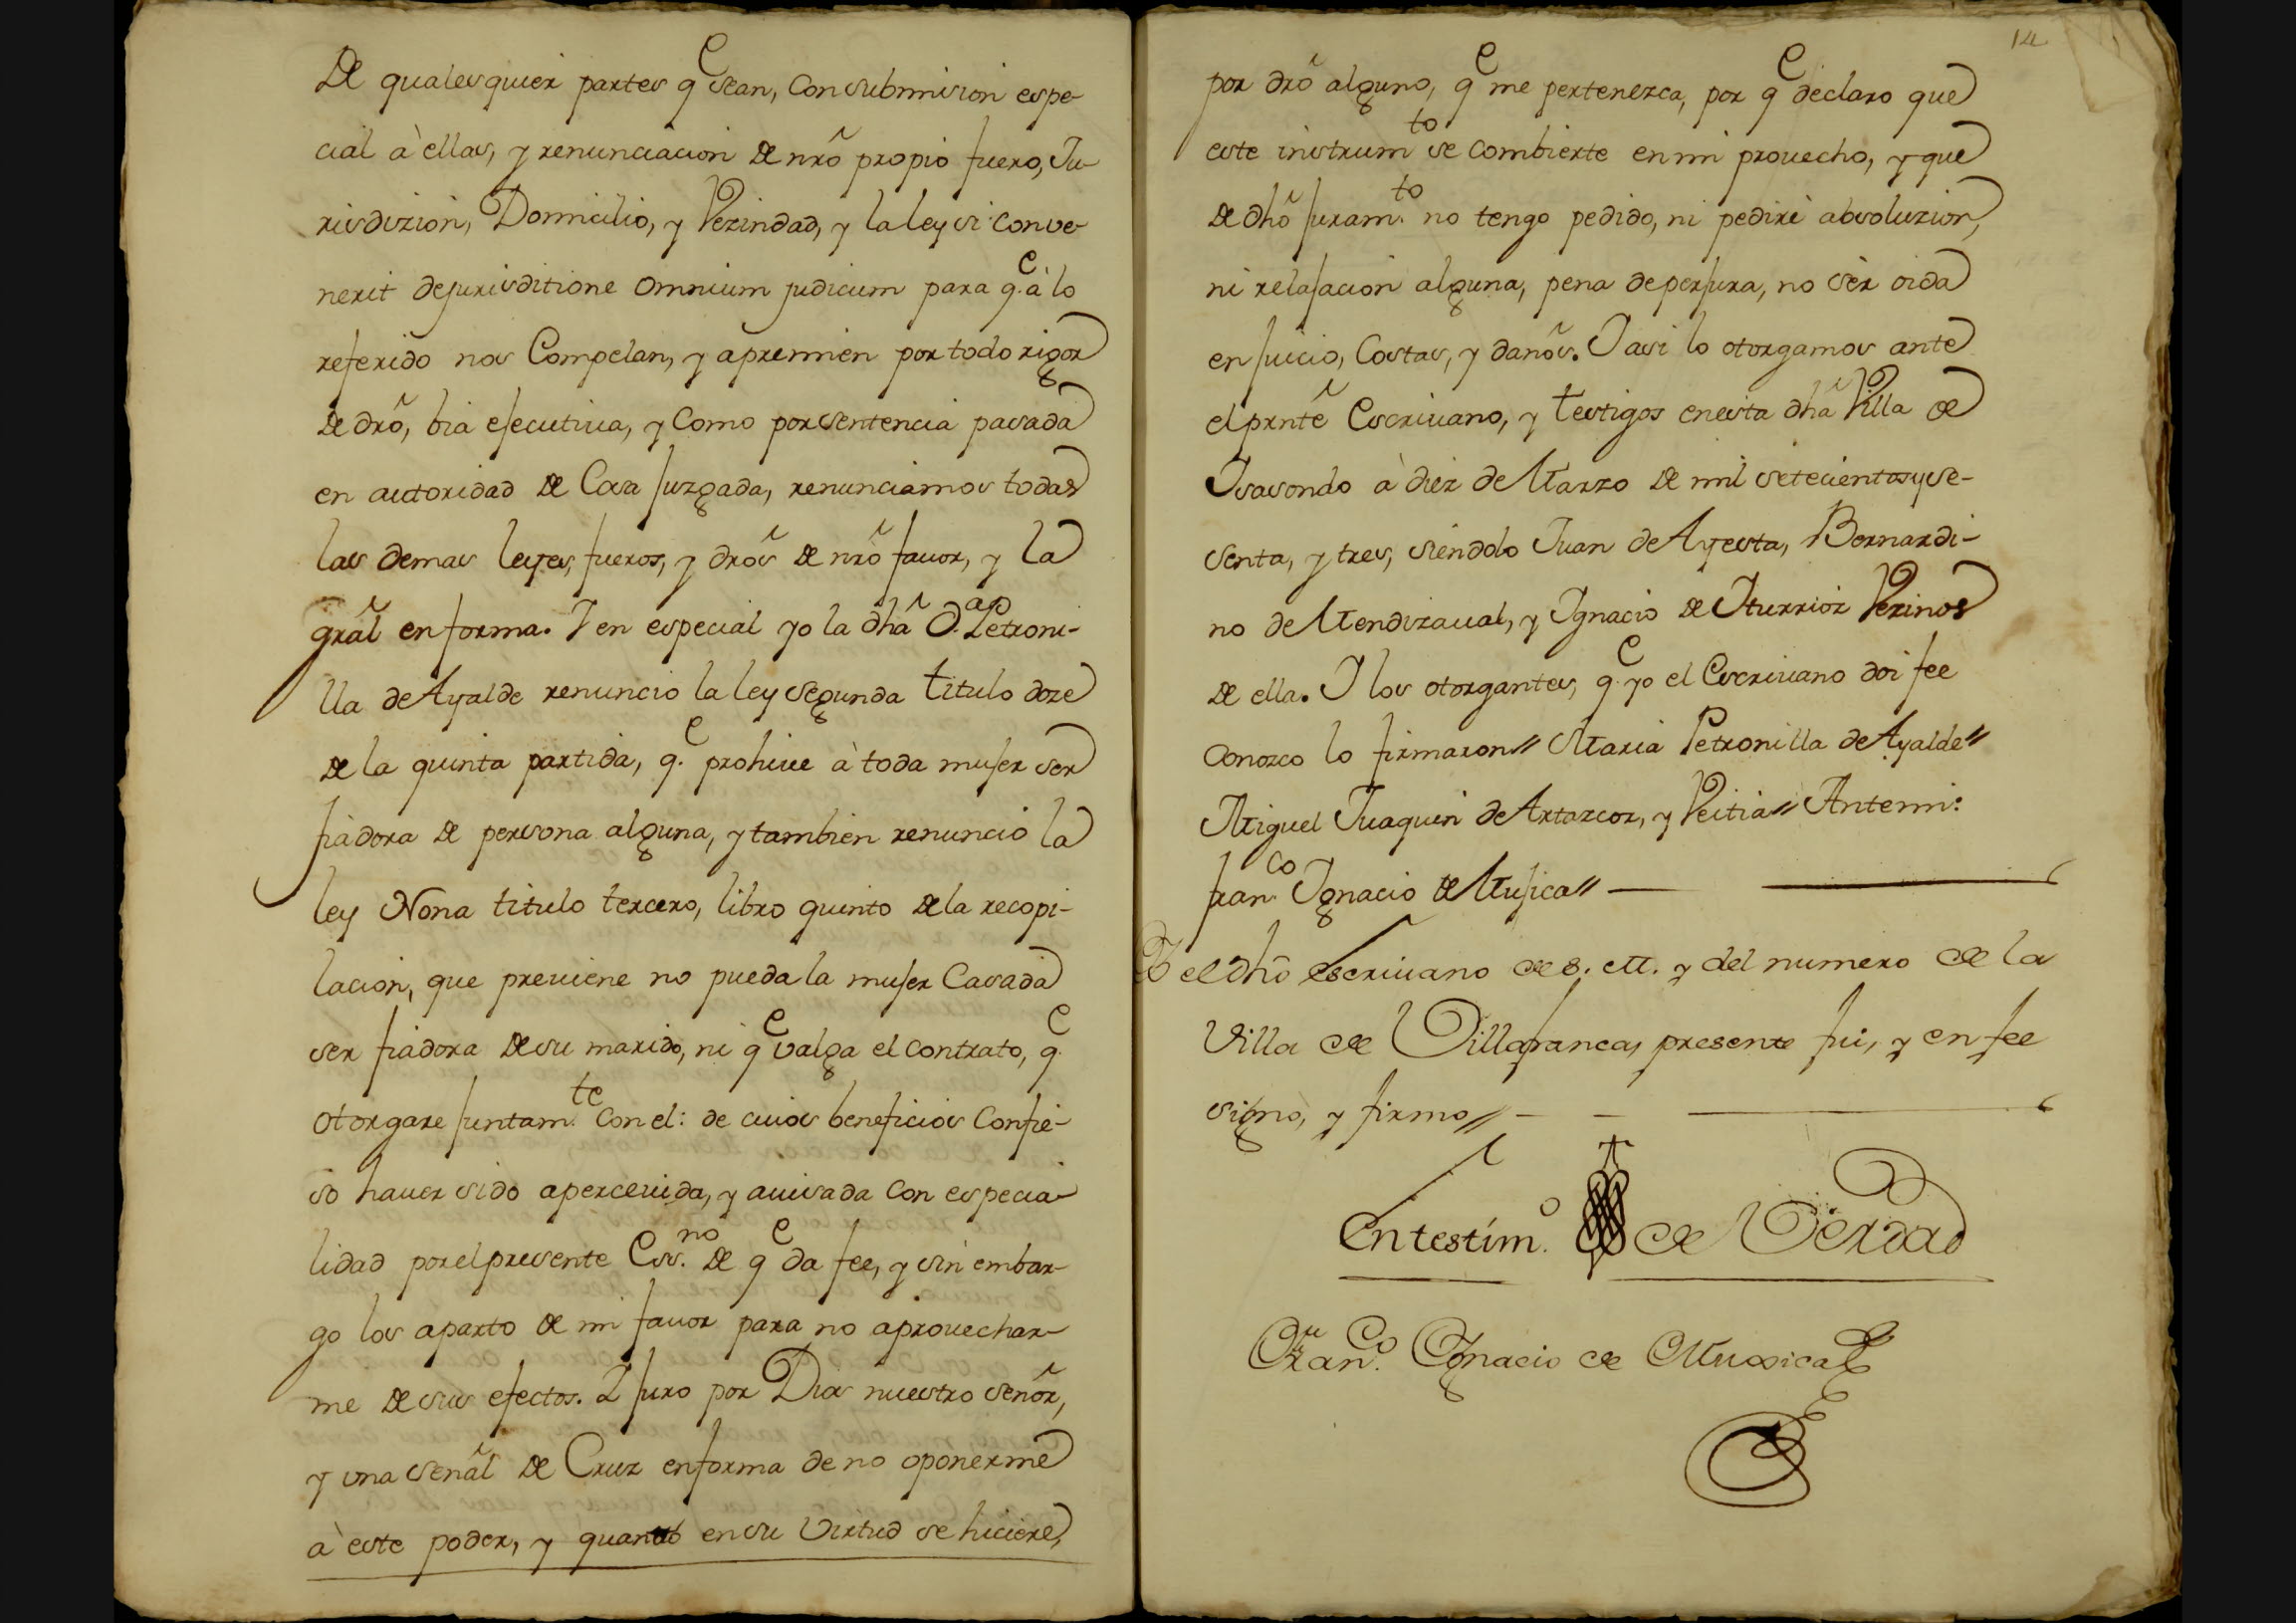 De qualesquier partes q.e sean, con submision espe-
cial à ellas, y renunciacion de nrõ propio fuero, Ju-
risdizion, Domicilio, y Vezindad, y la ley si conve-
nerit de jurisditione omnium judicum para q.e à lo
referido nos Compelan, y apremien por todo rigor
de drõ, bia ejecutiua, y Como por sentencia pasada
en autoridad de Cosa juzgada, renunciamos todas
las demas leyes, fueros, y drõs de nrõ fauor, y la
grãl en forma. Y en especial yo la dhã D.ª Petroni-
lla de Ayalde renuncio la ley segunda titulo doze
de la quinta partida, q.e prohiue à toda mujer ser
fiadora de persona alguna, y tambien renuncio la
ley Nona titulo tercero, libro quinto de la recopi-
lacion, que preuiene no pueda la mujer Casada
ser fiadora de su marido, ni q.e valga el contrato, q.e
otorgare juntam.te con el: de cuios beneficios Confie-
so hauer sido aperceuida, y auisada con especia-
lidad por el presente Ess.no de q.e da fee, y sin embar-
go los aparto de mi fauor para no aprouechar-
me de sus efectos. Y juro por Dios nuestro señor,
y una señal de Cruz en forma de no oponerme
à este poder, y quanto en su virtud se hiciere,
14
por drõ alguno, q.e me pertenezca, por q.e declaro que
este instrum.to se combierte en mi prouecho, y que
de dhõ juram.to no tengo pedido, ni pedirè absoluzion,
ni relajacion alguna, pena de perjura, no sèr oida
en juicio, Costas, y daños. Y asi lo otorgamos ante
el prnte Escriuano, y testigos en esta dhã Villa de
Ysasondo à diez de Marzo de mil setecientos y se-
senta, y tres, siendolo Juan de Ayesta, Bernardi-
no de Mendizaual, y Ygnacio de Yturrioz Vezinos
de ella. Y los otorgantes, q.e yo el Escriuano doi fee
conozco lo firmaron// Maria Petronilla de Ayalde//
Miguel Juaquin de Artazcoz, y Veitia// Antemi:
fran.co Ygnacio de Mujica//
Yo el dhõ escriuano de S. M. y del numero de la
Villa de Villafranca, presente fui, y en fee
signò, y firmo//
En testim.o de Verdad
Fran.co Ygnacio de Muxica